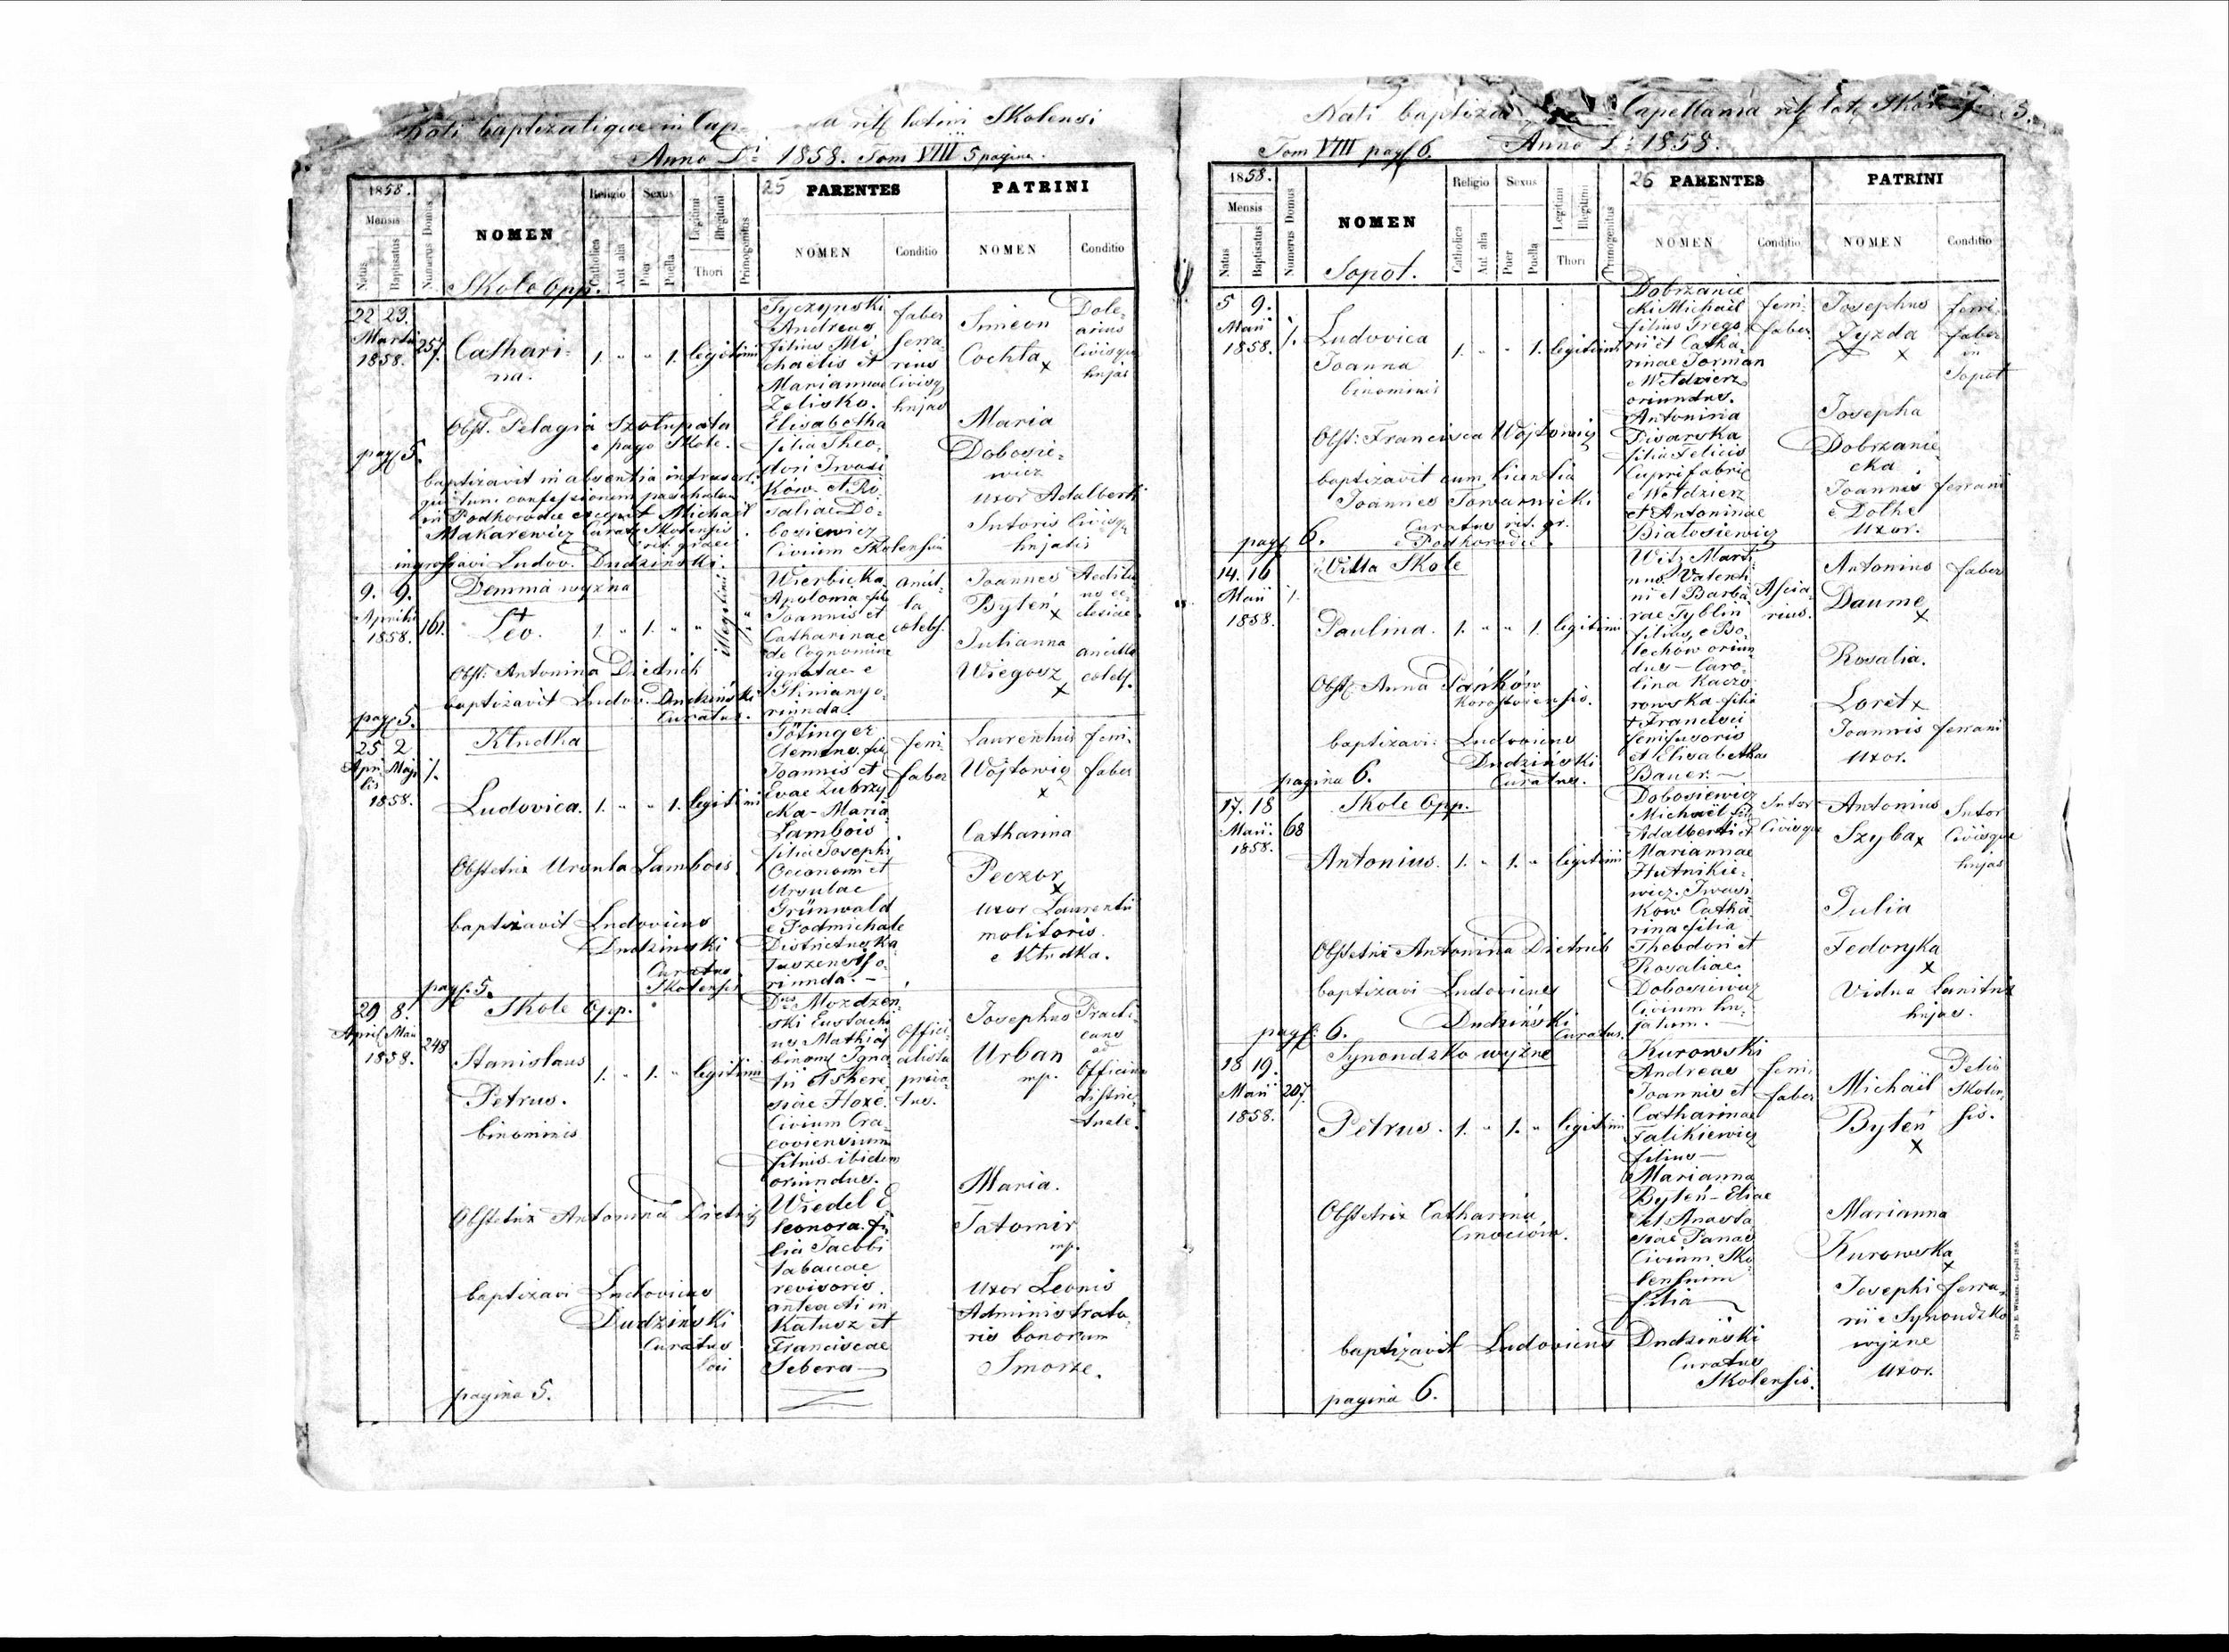 Nati baptizatique in Cap a rit lutini Skolensi
Anno D: 1858. Tom VIII 5 pagina.
1858.
Mensis
Natus
Baptisatus
Numerus Domus
NOMEN
Skole Opp.
Religio
Catholica
Aut alia
Sexus
Puer
Puella
Legitimi
Illegitimi
Thori
Primogenitus
25 PARENTES
NOMEN
Conditio
PATRINI
NOMEN
Conditio
22 23.
Martii
1858.
257.
Cathari-
na.
1. " " 1. legitimi
Tyczynski
Andreas
filius Mi
chaelis et
Mariannae
Zelisko.
Elisabetha
filia Theo-
dori Iwasi
ków et Ro
saliae Do-
bosiewicz
Civium Skolensium
faber
ferra-
rius
Civisq
hujas
Simeon
Cochta x
Dole-
arius
Civisque
hujas
Maria
Dobosie-
wicz
uxor Adalberti
Sutoris Civisq
hujatis
Obst. Pelagia Szolupata
e pago Skole.
pag 5.
baptizavit in absentia infrascrti
qui tunc confessionem paschalem
in Podhorodce excepit Michael
Makarewicz Curat Skolensis
rit. graeci
ingrossavi Ludov. Dudzinski.
9. 9.
Aprilis
1858.
161.
Demnia wyżna
Leo.
1. " 1. " " illegitimi "
Wierbicka
Apolonia fil
Joannis et
Catharinae
de Cognomine
ignotae e
Gliniany o-
riunda.
ancil-
la
coelebs.
Joannes
Byteń x
Aeditu
us ec-
clesiae
Julianna
Wiegosz x
ancilla
coelebs.
Obst: Antonina Dietrich
baptizavit Ludov. Dudziński
Curatus.
pag 5.
25 2
Apri Maji
lis
1858.
1.
Kludka
Ludovica.
1. " " 1. legitimi
Götinger
Clemens. fil
Joannis et
Evae Zubrzy
cka - Maria
Lambois
filia Josephi
Oeconomi et
Ursulae
Grünwald
e Podmichale
Districtus Ka
luszensis o-
riunda. -
ferri-
faber
Laurentius
Wojtowicz
x
ferri-
faber
Catharina
Peczor
x
uxor Laurentii
molitoris
e Kludka.
Obstetrix Ursula Lambois
baptizavit Ludovicus
Dudzinski
Curatus
Skolensis
pag. 5.
29 8.
April Maii
1858.
248
Skole Opp.
Stanislaus
Petrus.
binominis
1. " 1. " legitimi
Dnus Mozdzen
ski Eustachi
us Mathias
binom Igna
tii et There
siae Hoxe.
Civium Cra-
coviensium
filius ibidem
oriundus.
Wiedel E
leonora. fi
lia Jacobi
tabacae
revisoris
anteacti in
Katusz et
Franciscae
Sebera
Offici-
alista
priva-
tus.
Josephus
Urban
mp.
Practi-
cans
ad
Officium
distric-
tuale
Maria.
Tatomir
mp.
uxor Leonis
Administrato-
ris bonorum
Smorze.
Obstetrix Antonina Dietrich
baptizavi Ludovicus
Dudziński
Curatus
loci
pagina 5.
Nati baptiza Capellania rit lat Skol 3.
Tom VIII pag 6. Anno D: 1858.
1858.
Mensis
Natus
Baptisatus
Numerus Domus
NOMEN
Sopot.
Religio
Catholica
Aut alia
Sexus
Puer
Puella
Legitimi
Illegitimi
Thori
Primogenitus
26 PARENTES
NOMEN
Conditio
PATRINI
NOMEN
Conditio
5 9.
Maii
1858.
1.
Ludovica
Joanna
binominis
1. " " 1. legitimi
Dobrzanie
cki Michael
filius Grego
rii et Catha-
rinae Forman
e Weldzierz
oriundus.
Antonina
Pisarska
filia Felicis
Cuprifabri
e Weldzierz
et Antoninae
Bialosiewicz
ferri-
faber
Josephus
Zyzda
x
ferri-
faber
in
Sopot
Josepha
Dobrzanie-
cka
Joannis ferrarii
e Dolhe
uxor.
Obst: Francisca Wojtowicz
baptizavit cum licentia
Joannes Towarnicki
Curatus rit. gr.
e Podhorodce.
pag. 6.
14. 16
Maii
1858
1.
Villa Skole
Paulina.
1. " " 1. legitimi
Witz Marti-
nus Valenti
ni et Barba
rae Tyblin
filius, e Bo-
lechów oriun
dus - Caro-
lina Kaczo
rowska filia
+ Francisci
ferrifusoris
et Elisabethae
Bauer. -
Ascia-
rius.
Antonius
Daume
x
faber
Rosalia.
Loret x
Joannis ferrarii
uxor.
Obst. Anna Pańków
Korostoviensis.
baptizavi: Ludovicus
Dudziński
Curatus.
pagina 6.
17. 18
Maii.
1858.
68
Skole Opp.
Antonius.
1. " 1. " legitimi
Dobosiewicz
Michael fil
Adalberti et
Mariannae
Hutnikie-
wicz. Iwasi
ków Catha
rina filia
Theodori et
Rosaliae
Dobosiewicz
Civium hu-
jatum. -
Sutor
Civisque
Antonius
Szyba x
Sutor
Civisque
hujas
Julia
Fedoryka
x
Vidua Lanitrix
hujas.
Obstetrix Antonina Dietrich
baptizavi Ludovicus
Dudziński
Curatus.
pag. 6.
18 19.
Maii
1858.
207.
Synowodzko wyżne
Petrus.
1. " 1. " legitimi
Kurowski
Andreas
Joannis et
Catharinae
Falikiewicz
filius -
Marianna
Byteń - Eliae
et Anasta
siae Panas
Civium Sko
lensium
filia
ferri
faber
Michael
Byteń
x
Skolen
sis.
Marianna
Kurowska
x
Josephi ferra-
rii e Synowodzko
wyżne
uxor.
Obstetrix Catharina
Cmociów.
baptizavit Ludovicus Dudziński
Curatus
Skolensis.
pagina 6.